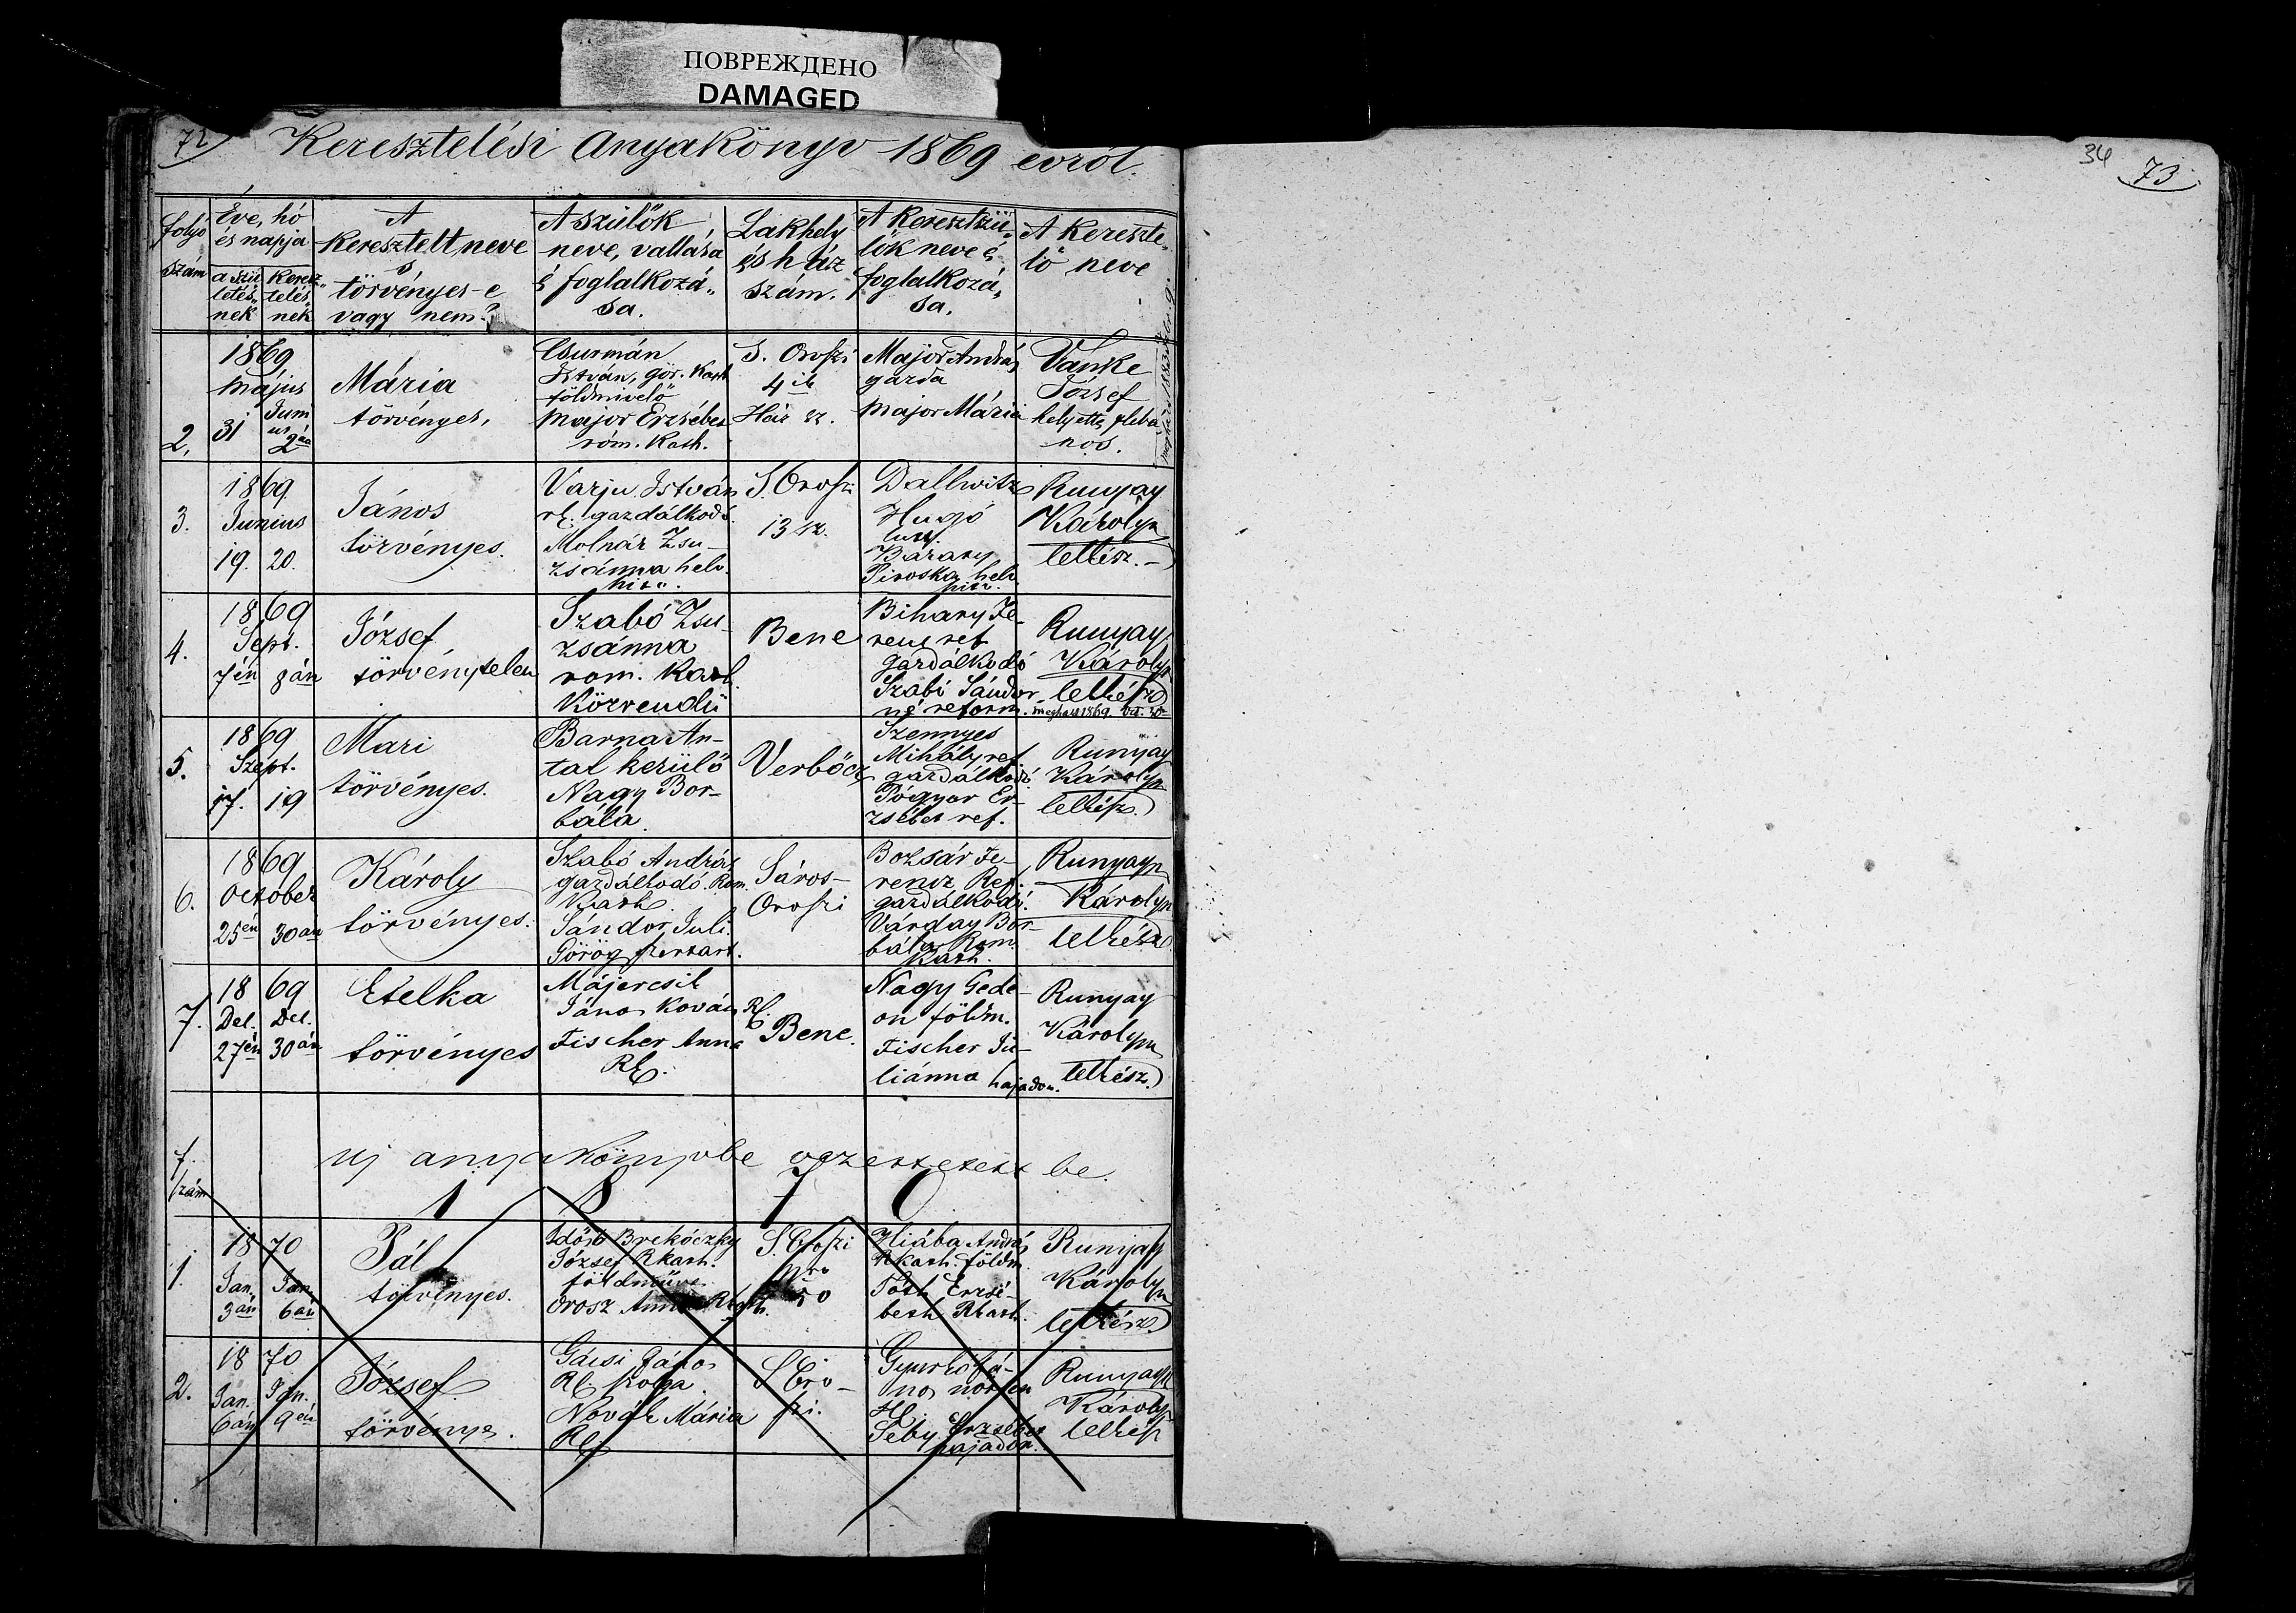 ПОВРЕЖДЕНО
DAMAGED
72
Keresztelési Anyakönyv 1869 évről.
34
73
folyó szám
Éve, hó
és napja
a szü-
letés-
nek
keresz-
telés-
nek
A
keresztelt neve
s
törvényes-e
vagy nem?
A szülők
neve, vallása
é foglalkozá-
sa.
Lakhely
és ház
szám.
A keresztszü-
lők neve é
foglalkozá-
sa.
A keresz­te-
lő neve
2.
1869
Május
31
Juni
us
2án
Mária
törvényes.
Csurmán
István, gör. Kath
földmivelő
Major Erzsébet
róm. Kath.
S. Oroszi
4ik
Ház sz.
Major András
gazda
Major Mária
Vanke
József
helyettes pleba
nos.
3.
1869
Junius
19. 20.
János
törvényes.
Varju István
rk. gazdálkodó.
Molnár Zsu-
zsánna helv.
hitv.
S. Oroszi
13 sz.
Dallwitz
Hugó
Bárány
Piroska helv.
Runyay
Károly
lelkész.
4.
1869
Sept.
7én 8án
József
törvénytelen
Szabó Zsu-
zsánna
rom. Kath.
Közrendü
Bene
Bihary Fe-
renc ref
gazdálkodó
Szabó Sándor-
né reform.
Runyay
Károly
lelkész
meghalt 1869.
5.
1869
Szept.
17. 19
Mari
törvényes.
Barna An-
tal kerülő
Nagy Bor-
bála.
Verbőcz
Szennyes
Mihály ref.
gazdálkodó.
Pógyor Er-
zsébet ref.
Runyay
Károly
lelkész.
6.
1869
October
25én 30án
Károly
törvényes.
Szabó András
gazdálkodó. Rom.
Kath.
Sándor Juli.
Görög szertart.
Sáros-
Oroszi
Bozsár Fe-
rencz Ref.
gazdálkodó.
Várday Bor-
bála Rom.
Kath.
Runyay
Károly
lelkész
7.
1869
Dec. Dec.
27én 30án
Etelka
törvényes
Májercsik
János Kovács
Fischer Anna
Rk.
Rk.
Bene.
Nagy Gede-
on földm.
Fischer Ju-
liánna hajadon.
Runyay
Károly
lelkész.
f.
szám
uj anyakönyvbe vezettetett be.
1 8 7 0
1.
1870
Jan. Jan.
3án 6án
Pál
törvényes.
Idősb Brekóczky
József Rkath.
földmüves
Orosz Anna Rkath.
S. Oroszi
Nro
50
Hliába András
Rkath. földm.
Tóth Erzsé-
beth Rkath.
Runyay
Károly
lelkész
2.
1870
Jan. Jan.
6án 9én
József
törvényes.
Gácsi János
Rk. szolga
Novák Mária
Rk.
S. Oro-
szi.
Gyurkó Já-
nos nőtlen
Seby Erzsébet
hajadon.
Runyay
Károly
lelkész